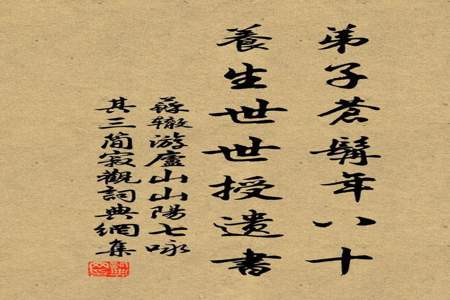 弟子蒼髯年八十
養生世世授遺書
蘇轍游廬山山陽七咏
其三簡寂觀詞典網集